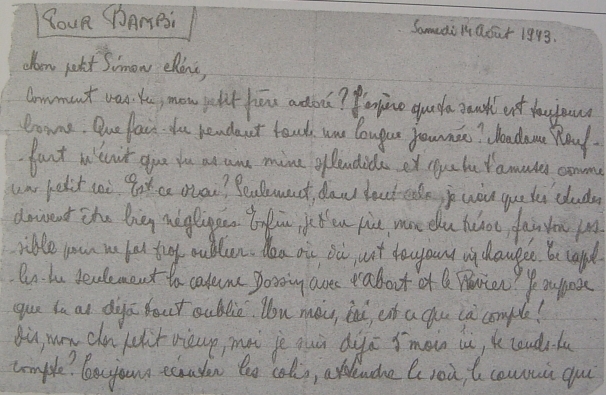 POUR BAMBI
Samedi 14 Août 1943.
Mon petit Simon chéri,
Comment vas-tu, mon petit frère adoré? J'espère que ta santé est toujours
bonne. Que fais-tu pendant toute une longue journée? Madame Rouf-
-fart m'écrit que tu as une mine splendide et que tu t'amuses comme
un petit roi. Est ce vrai? Seulement, dans tout cela, je crois que tes études
doivent être bien négligées. Enfin, je t'en prie, mon cher trésor, fais ton pos-
-sible pour ne pas trop oublier. vie, ici, est toujours inchangée. Te rapel-
-les-tu seulement la caserne Dossin avec l'Abort et le Revier? Je suppose
que tu as déjà tout oublié. Un mois, ici, est ce que çà compte!
Dis, mon cher petit vieux, moi je suis déjà 5 mois ici, te rends-tu
compte? Toujours écouter les colis, attendre le soir, le courrier qui